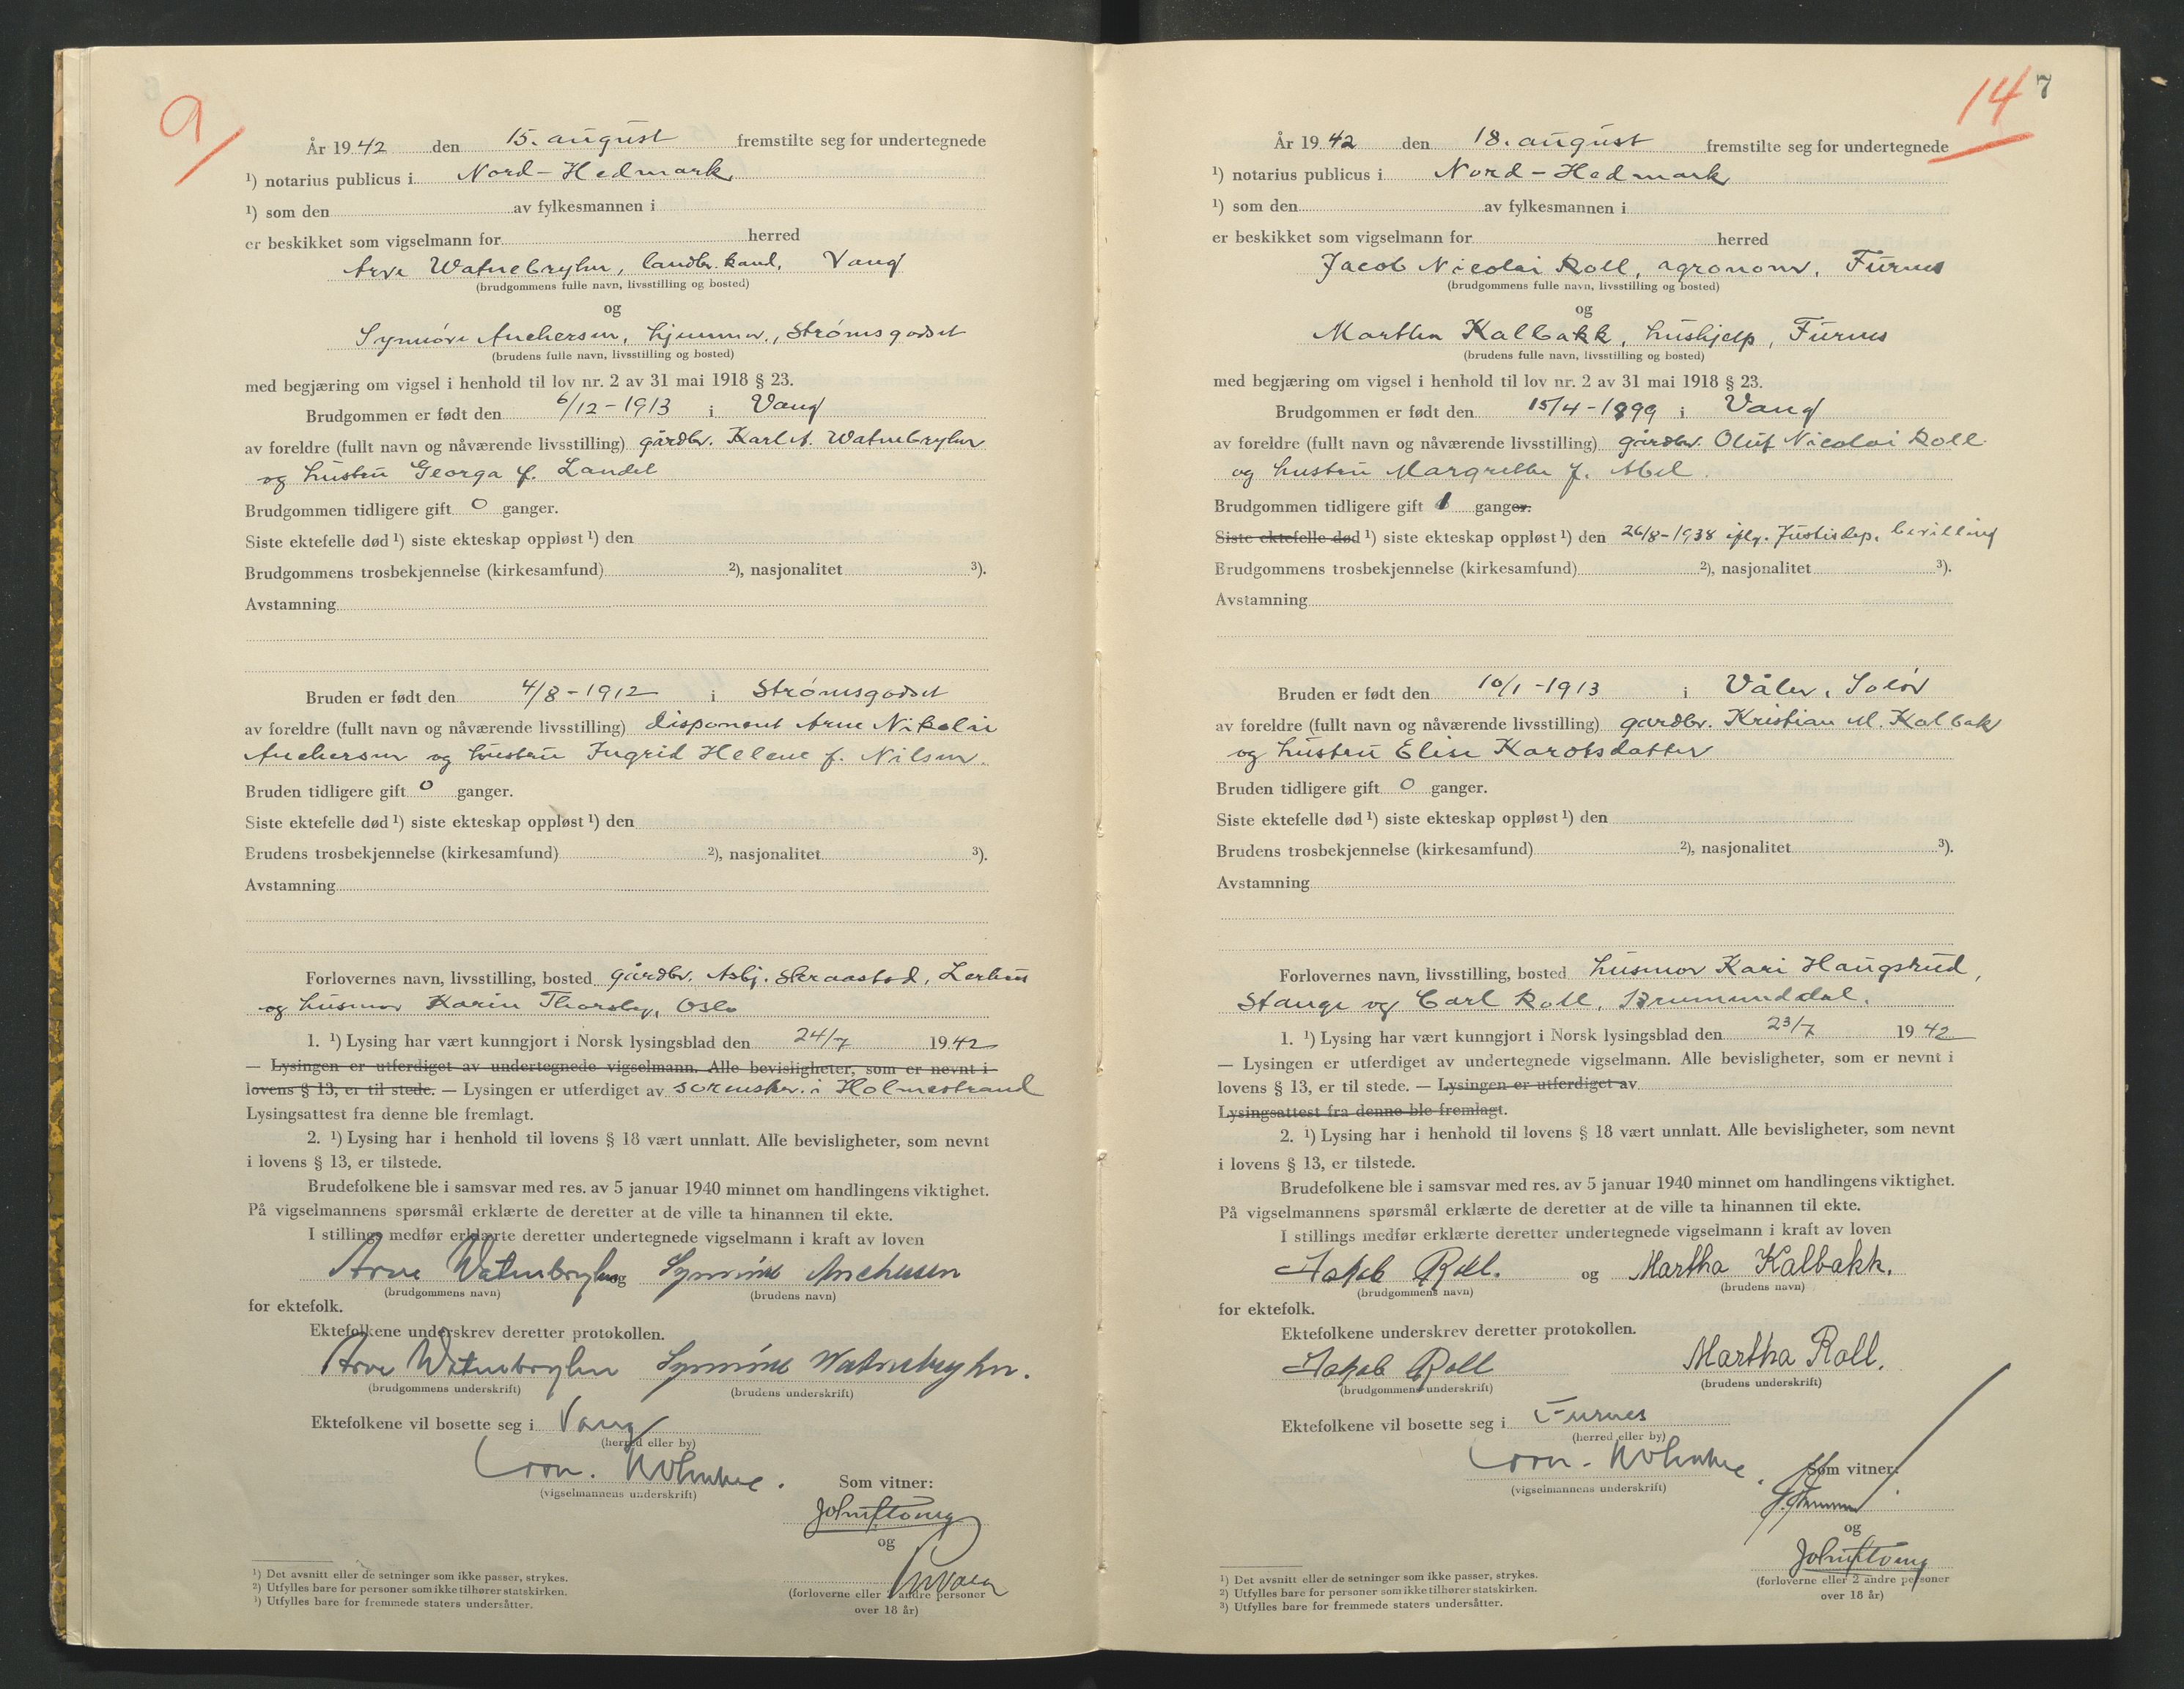 9
År 1942 den 15. august fremstilte seg for undertegnede
¹) notarius publicus i Nord-Hedmark
¹) som den av fylkesmannen i
er beskikket som vigselmann for herred
Arve Watnebryhn, landbr. kand, Vang
(brudgommens fulle navn, livsstilling og bosted)
og
Synnöve Anchersen, hjemmev., Strömsgodset
(brudens fulle navn, livsstilling og bosted)
med begjæring om vigsel i henhold til lov nr. 2 av 31 mai 1918 § 23.
Brudgommen er født den 6/12-1913 i Vang
av foreldre (fullt navn og nåværende livsstilling) gårdbr. Karl A. Watnebryhn
og hustru Georga f. Landet
Brudgommen tidligere gift 0 ganger.
Siste ektefelle død ¹) siste ekteskap oppløst ¹) den
Brudgommens trosbekjennelse (kirkesamfund) ²), nasjonalitet ³).
Avstamning
Bruden er født den 4/8-1912 i Strömsgodset
av foreldre (fullt navn og nåværende livsstilling) disponent Arne Nikolai
Anchersen og hustru Ingrid Helene f. Nilsen.
Bruden tidligere gift 0 ganger.
Siste ektefelle død ¹) siste ekteskap oppløst ¹) den
Brudens trosbekjennelse (kirkesamfund) ²), nasjonalitet ³).
Avstamning
Forlovernes navn, livsstilling, bosted gårdbr. Asbj. Skraastad,
og husmor Karin Thorsby, Oslo
1. ¹) Lysing har vært kunngjort i Norsk lysingsblad den 24/7 1942
— Lysingen er utferdiget av undertegnede vigselmann. Alle bevisligheter, som er nevnt i
lovens § 13, er til stede. — Lysingen er utferdiget av sorenskr. i Holmestrand
Lysingsattest fra denne ble fremlagt.
2. ¹) Lysing har i henhold til lovens § 18 vært unnlatt. Alle bevisligheter, som nevnt
i lovens § 13, er tilstede.
Brudefolkene ble i samsvar med res. av 5 januar 1940 minnet om handlingens viktighet.
På vigselmannens spørsmål erklærte de deretter at de ville ta hinannen til ekte.
I stillings medfør erklærte deretter undertegnede vigselmann i kraft av loven
Arve Watnebryhn og Synnöve Anchersen
(brudgommens navn) (brudens navn)
for ektefolk.
Ektefolkene underskrev deretter protokollen.
Arve Watnebryhn Synnöve Watnebryhn.
(brudgommens underskrift) (brudens underskrift)
Ektefolkene vil bosette seg i Vang
(herred eller by)
(vigselmannens underskrift)
Som vitner:
og
(forloverne eller 2 andre personer
over 18 år)
¹) Det avsnitt eller de setninger som ikke passer, strykes.
²) Utfylles bare for personer som ikke tilhører statskirken.
³) Utfylles bare for fremmede staters undersåtter.
14 7
År 1942 den 18. august fremstilte seg for undertegnede
¹) notarius publicus i Nord-Hedmark
¹) som den av fylkesmannen i
er beskikket som vigselmann for herred
Jacob Nicolai Roll, agronom, Furnes
(brudgommens fulle navn, livsstilling og bosted)
og
Martha Kalbakk, hushjelp, Furnes
(brudens fulle navn, livsstilling og bosted)
med begjæring om vigsel i henhold til lov nr. 2 av 31 mai 1918 § 23.
Brudgommen er født den 15/4-1899 i Vang
av foreldre (fullt navn og nåværende livsstilling) gårdbr. Oluf Nicolai Roll
og hustru Margrethe f. Abel.
Brudgommen tidligere gift 1 ganger.
Siste ektefelle død ¹) siste ekteskap oppløst ¹) den 26/8-1938 iflg. Justisdep. bevilling
Brudgommens trosbekjennelse (kirkesamfund) ²), nasjonalitet ³).
Avstamning
Bruden er født den 10/1-1913 i Våler, Solör
av foreldre (fullt navn og nåværende livsstilling) gardbr. Kristian M. Kalbak
og hustru Elise Karolsdatter
Bruden tidligere gift 0 ganger.
Siste ektefelle død ¹) siste ekteskap oppløst ¹) den
Brudens trosbekjennelse (kirkesamfund) ²), nasjonalitet ³).
Avstamning
Forlovernes navn, livsstilling, bosted husmor Kari Haugsrud,
Stange og Carl Roll, Brumunddal.
1. ¹) Lysing har vært kunngjort i Norsk lysingsblad den 23/7 1942
— Lysingen er utferdiget av undertegnede vigselmann. Alle bevisligheter, som er nevnt i
lovens § 13, er til stede. — Lysingen er utferdiget av
Lysingsattest fra denne ble fremlagt.
2. ¹) Lysing har i henhold til lovens § 18 vært unnlatt. Alle bevisligheter, som nevnt
i lovens § 13, er tilstede.
Brudefolkene ble i samsvar med res. av 5 januar 1940 minnet om handlingens viktighet.
På vigselmannens spørsmål erklærte de deretter at de ville ta hinannen til ekte.
I stillings medfør erklærte deretter undertegnede vigselmann i kraft av loven
Jakob Roll. og Martha Kalbakk.
(brudgommens navn) (brudens navn)
for ektefolk.
Ektefolkene underskrev deretter protokollen.
Jakob Roll Martha Roll.
(brudgommens underskrift) (brudens underskrift)
Ektefolkene vil bosette seg i Furnes
(herred eller by)
(vigselmannens underskrift)
Som vitner:
og
(forloverne eller 2 andre personer
over 18 år)
¹) Det avsnitt eller de setninger som ikke passer, strykes.
²) Utfylles bare for personer som ikke tilhører statskirken.
³) Utfylles bare for fremmede staters undersåtter.